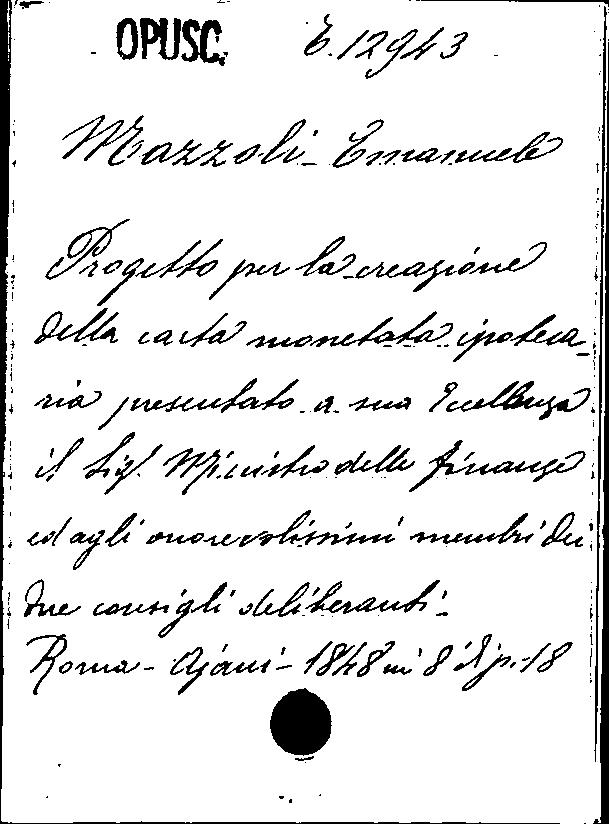 OPUSC. E.12943
Mazzoli - Emanuele
Progetto per la creazione
della carta monetata ipoteca-
ria presentato a sua Eccellenza
il Sigr. Ministro delle finanze
ed agli onorevolissimi membri dei
due consigli deliberanti -
Roma - Ajani - 1848 in 8° di p. 18